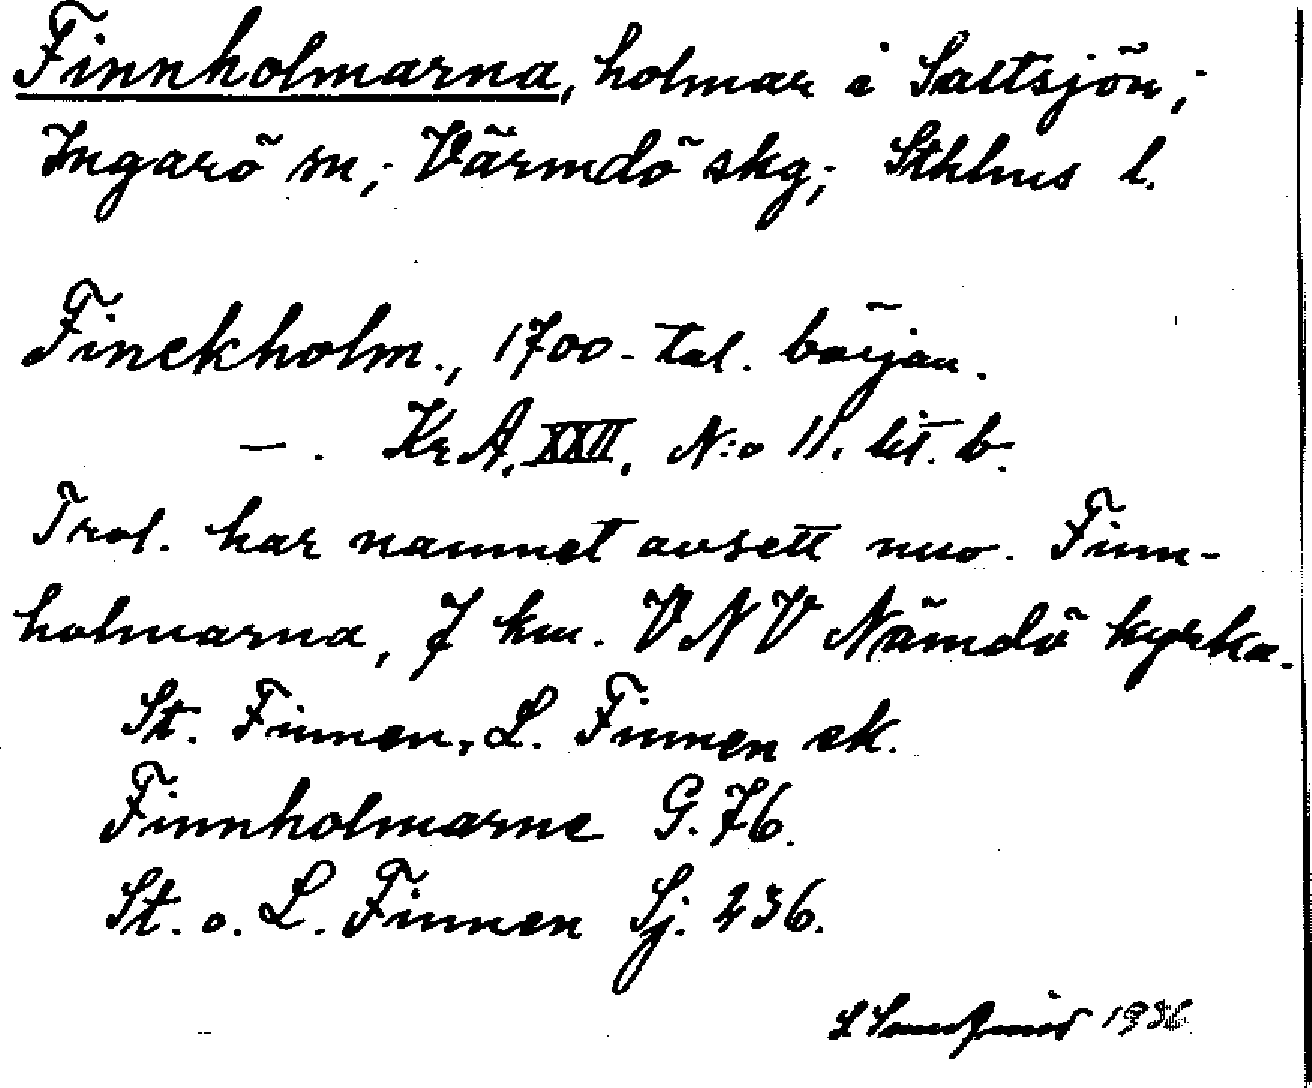 Finnholmarna, holmar i Saltsjön;
Ingarö sn; Värmdö skg; Sthlms l.
Finckholm., 1700-tal. början.
—. KrA. XXII, N:o 11. lit. b.
Trol. har namnet avsett nuv. Finn-
holmarna, 7 km. VNV Nämdö kyrka.
St. Finnen, L. Finnen ek.
Finnholmarne G. 76.
St. o. L. Finnen Sj. 236.
1936